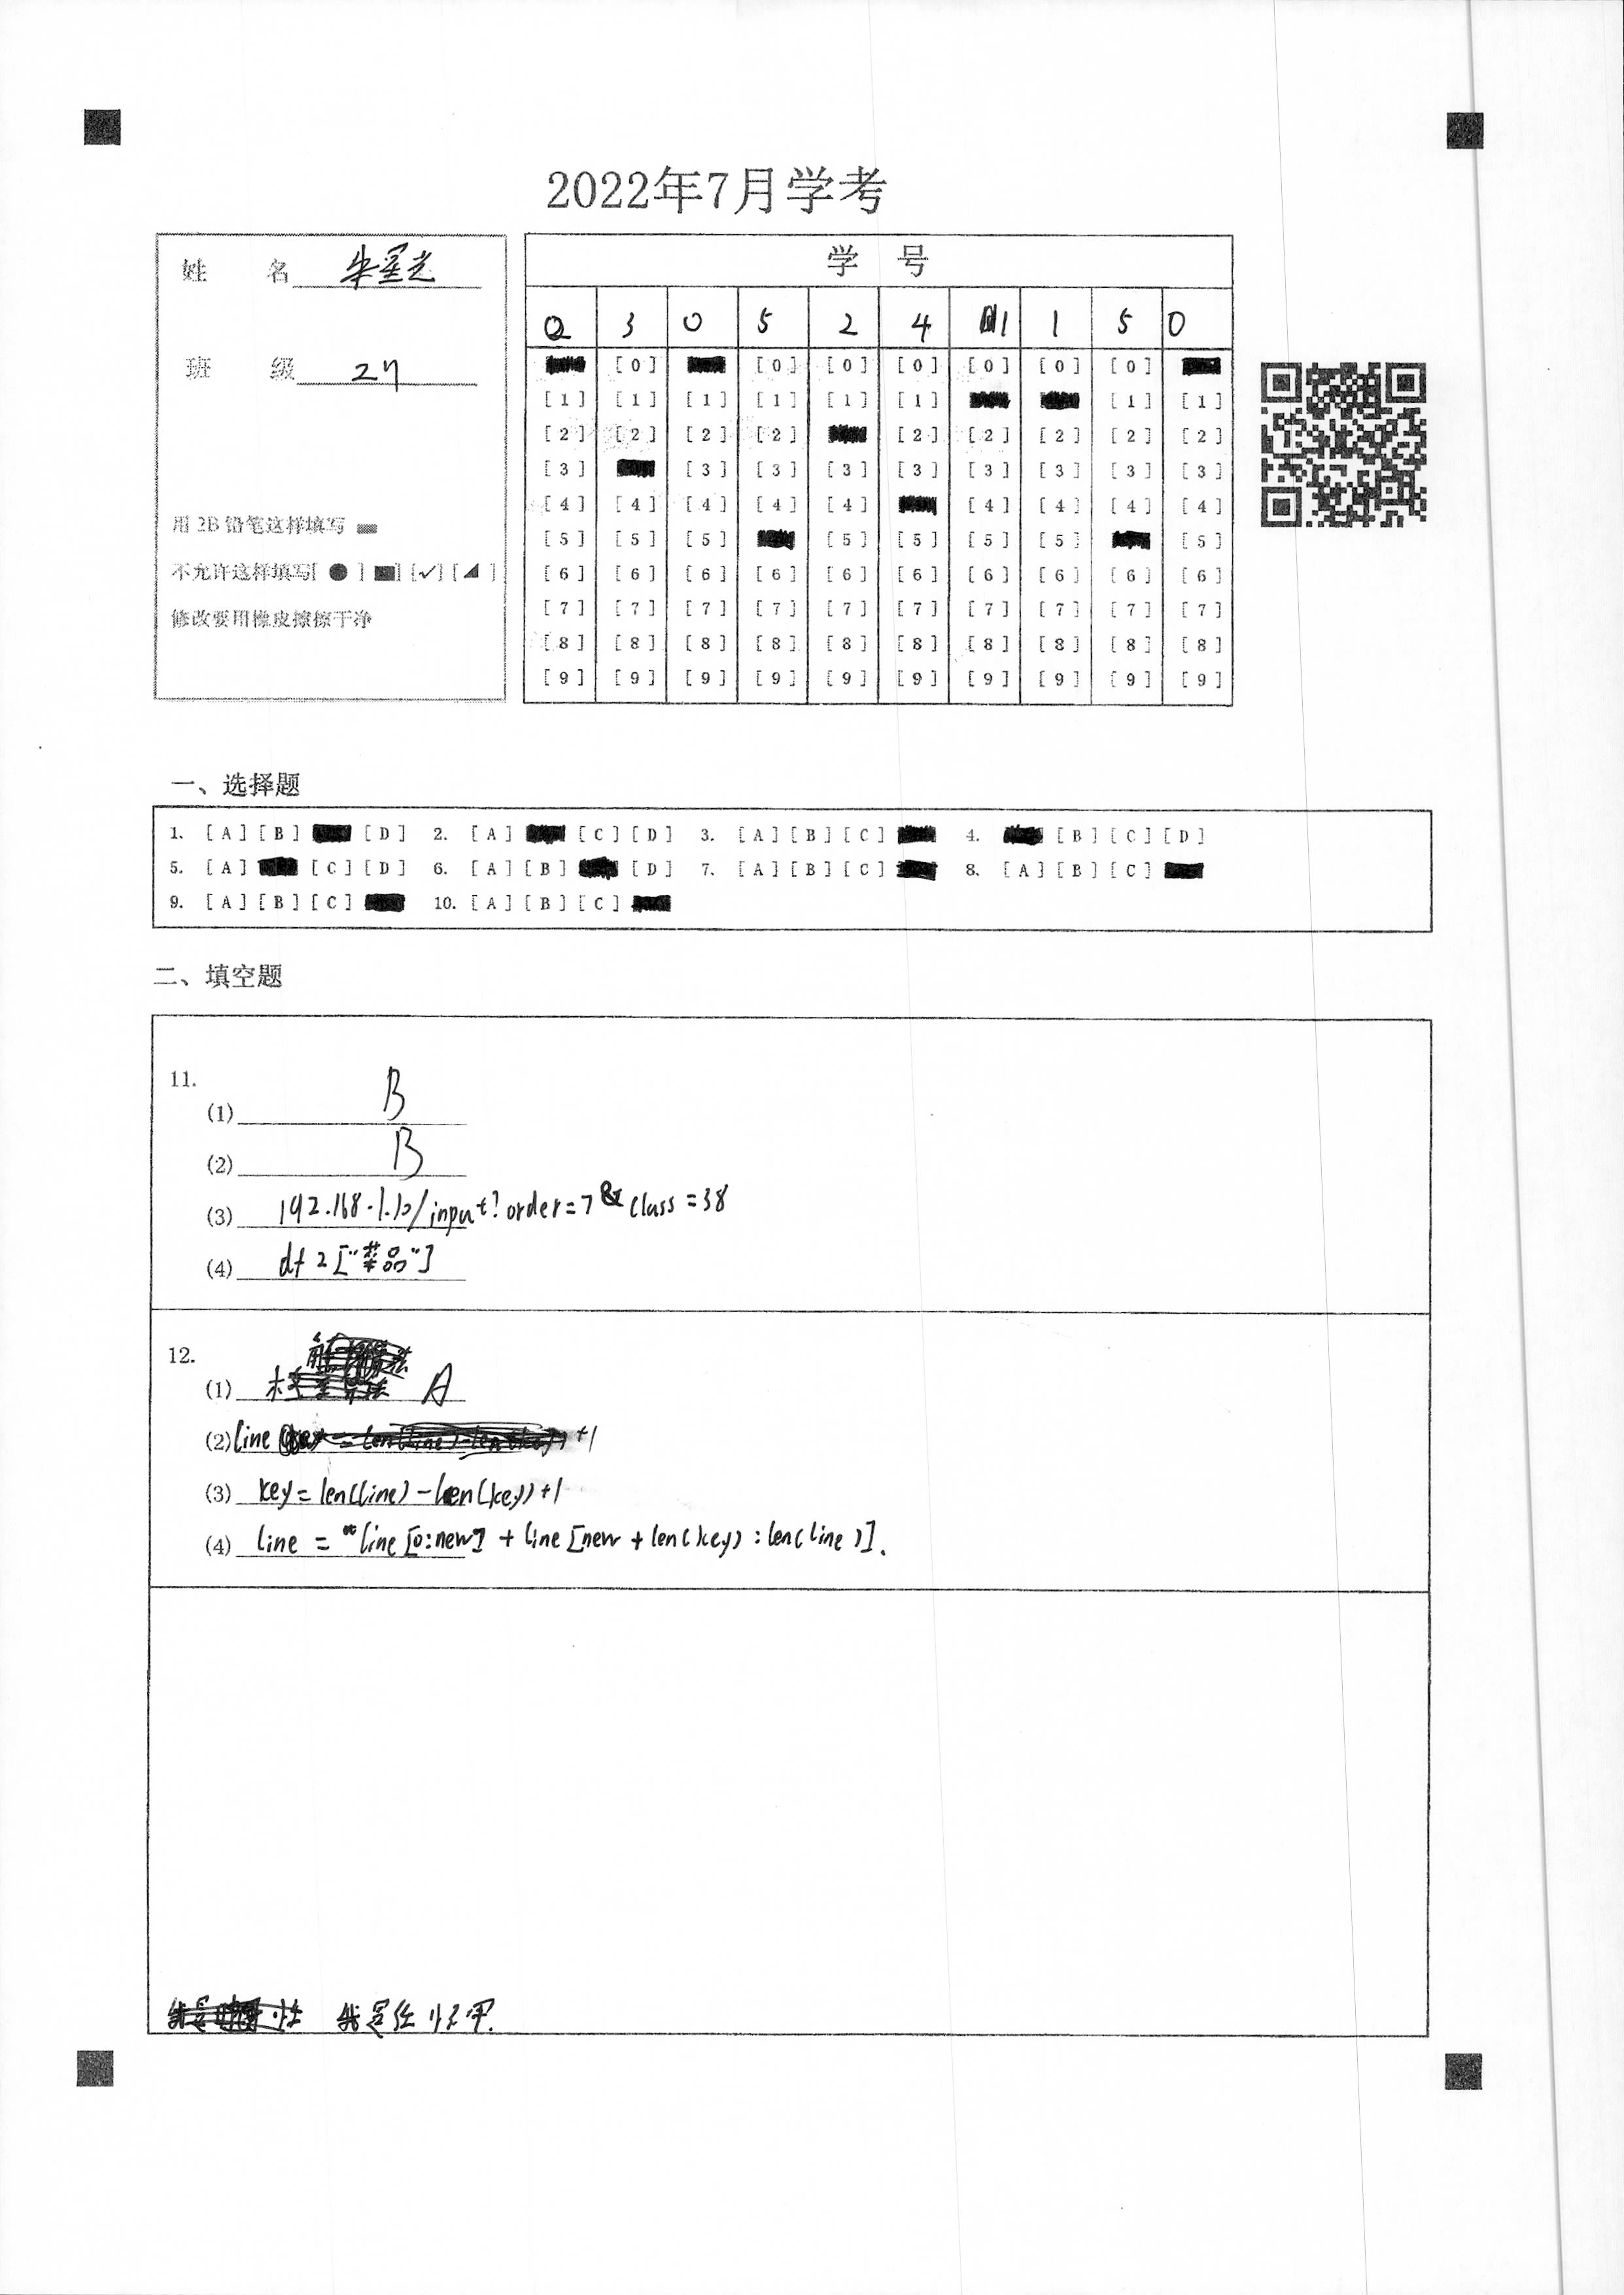 2022年7月学考
姓 名 朱星光
班 级 27
用 2B 铅笔这样填写
不允许这样填写[ ● ] [■] [✓] [◢ ]
修改要用橡皮擦擦干净
学 号
0 3 0 5 2 4 1 1 5 0
[0] [0] [0] [0] [0] [0] [0]
[1] [1] [1] [1] [1] [1] [1] [1]
[2] [2] [2] [2] [2] [2] [2] [2] [2]
[3] [3] [3] [3] [3] [3] [3] [3] [3]
[4] [4] [4] [4] [4] [4] [4] [4] [4]
[5] [5] [5] [5] [5] [5] [5] [5]
[6] [6] [6] [6] [6] [6] [6] [6] [6] [6]
[7] [7] [7] [7] [7] [7] [7] [7] [7] [7]
[8] [8] [8] [8] [8] [8] [8] [8] [8] [8]
[9] [9] [9] [9] [9] [9] [9] [9] [9] [9]
一、选择题
1. [A] [B] [D] 2. [A] [C] [D] 3. [A] [B] [C] 4. [B] [C] [D]
5. [A] [C] [D] 6. [A] [B] [D] 7. [A] [B] [C] 8. [A] [B] [C]
9. [A] [B] [C] 10. [A] [B] [C]
二、填空题
11.
(1) B
(2) B
(3) 192.168.1.10/input?order=7&class=38
(4) df2["菜品"]
12.
(1) A
(2) line +1
(3) key=len(line)-len(key)+1
(4) line = line[0:new] + line[new + len(key):len(line)].
我是